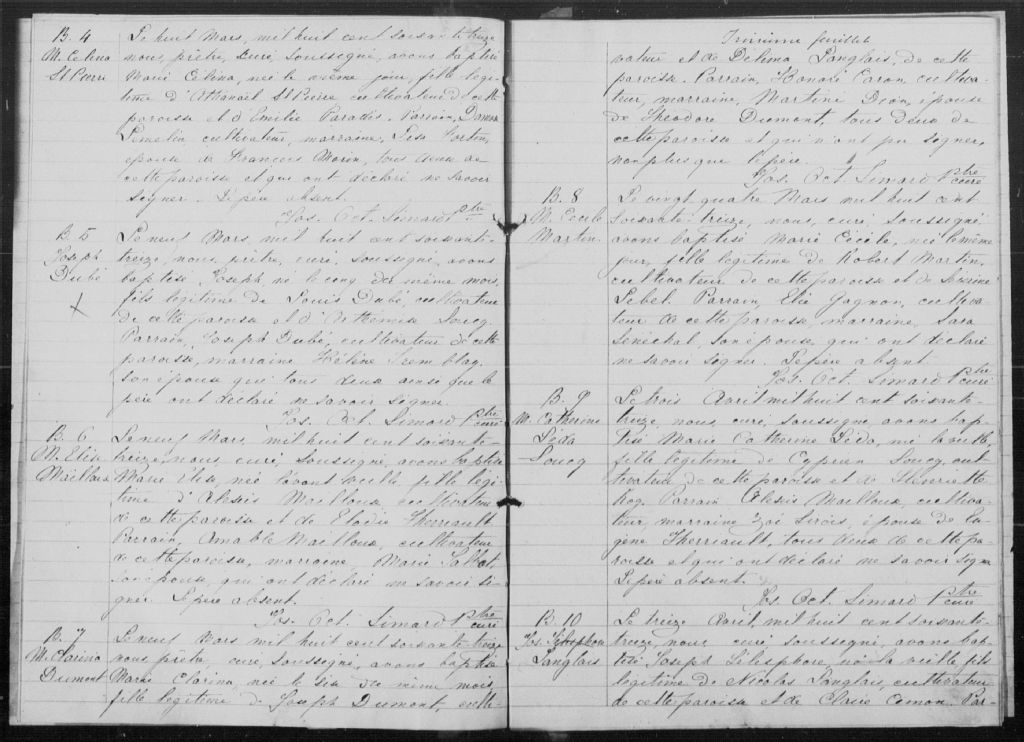 B. 4
M. Celina
St Pierre
Le huit Mars, mil huit cent soixante treize
nous, prêtre, curé, soussigné, avons baptisé
Marie Célina, née le même jour, fille légi-
time d'Athanaël St Pierre cultivateur de cette
paroisse et d'Emilie Paradis. Parrain, Damase
Pimelin cultivateur, marraine, Lisa Fortin,
épouse de François Morin, tous deux de
cette paroisse et qui ont déclaré ne savoir
signer. Le père absent.
Jos. Oct. Simard Ptre
B. 5
Joseph
Dubé
X
Le neuf Mars, mil huit cent soixante-
treize, nous, prêtre, curé, soussigné, avons
baptisé Joseph, né le cinq du même mois,
fils légitime de Louis Dubé, cultivateur
de cette paroisse et d'Arthémise Soucy
Parrain, Joseph Dubé, cultivateur de cette
paroisse, marraine Hélène Tremblay,
son épouse qui tous deux ainsi que le
père ont déclaré ne savoir signer.
Jos. Oct. Simard Ptre curé
B. 6
M. Elise
Mailloux
Le neuf Mars, mil huit cent soixante-
treize, nous, curé, soussigné, avons baptisé
Marie Elise, née l'avant veille fille légi-
time d'Alexis Mailloux, cultivateur
de cette paroisse et de Elodie Therriault
Parrain, Amable Mailloux, cultivateur
de cette paroisse, marraine, Marie Talbot,
son épouse, qui ont déclaré ne savoir si-
gner. Le père absent.
Jos. Oct. Simard Ptre curé
B. 7
M. Clarina
Dumont
Le neuf Mars, mil huit cent soixante-treize
nous, prêtre, curé, soussigné, avons baptisé
Marie Clarina, née le six du même mois,
fille légitime de Joseph Dumont, culti-
Troisième feuillet
vateur et de Délima Langlais, de cette
paroisse. Parrain, Honoré Caron, cultiva-
teur, marraine, Martine Dion, épouse
de Théodore Dumont, tous deux de
cette paroisse et qui n'ont pu signer,
non plus que le père.
Jos. Oct. Simard Ptre curé
B. 8
M. Cécile
Martin.
Le vingt quatre Mars mil huit cent
soixante-treize, nous, curé soussigné
avons baptisé Marie Cécile, née le même
jour, fille légitime de Robert Martin,
cultivateur de cette paroisse et de
Lebel. Parrain, Elie Gagnon, cultiva-
teur de cette paroisse, marraine, Sara
Sénéchal, son épouse, qui ont déclaré
ne savoir signer. Le père absent.
Jos. Oct. Simard Ptre curé
B. 9
M. Catherine
Léda
Soucy
Le trois Avril mil huit cent soixante-
treize, nous, curé, soussigné, avons bap-
tisé Marie Catherine Léda, née la veille,
fille légitime de Cyprien Soucy, cul-
tivateur de cette paroisse et de Henriette
Roy. Parrain Alexis Mailloux, cultiva-
teur, marraine Zoé Sirois, épouse de Eu-
gène Therriault, tous deux de cette pa-
roisse et qui ont déclaré ne savoir signer
Le père absent.
Jos. Oct. Simard Ptre curé
B. 10
Jos. Télesphore
Langlais
Le treize Avril mil huit cent soixante-
treize, nous curé soussigné, avons bap-
tisé Joseph Télesphore, né la veille fils
légitime de Nicolas Langlais, cultivateur
de cette paroisse et de Claire Cimon. Par-